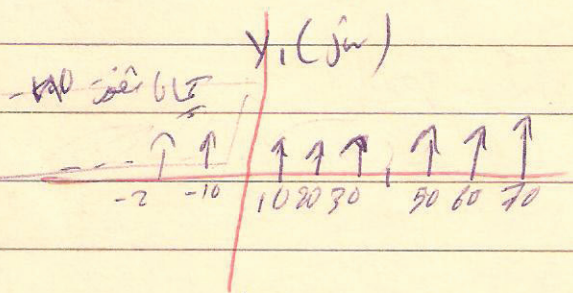 Y₁(jω)
-2 -10 10 20 30 50 60 70